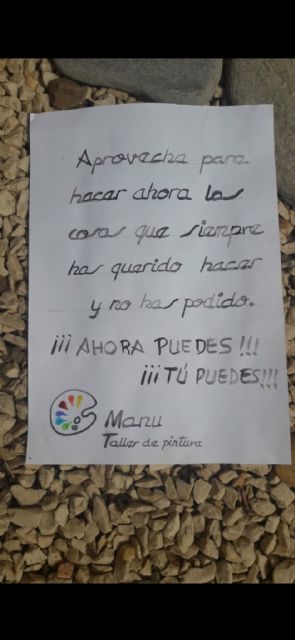 Aprovecha para
hacer ahora las
cosas que siempre
has querido hacer
y no has podido.
¡¡¡AHORA PUEDES!!!
¡¡¡TÚ PUEDES!!!
Manu
Taller de pintura